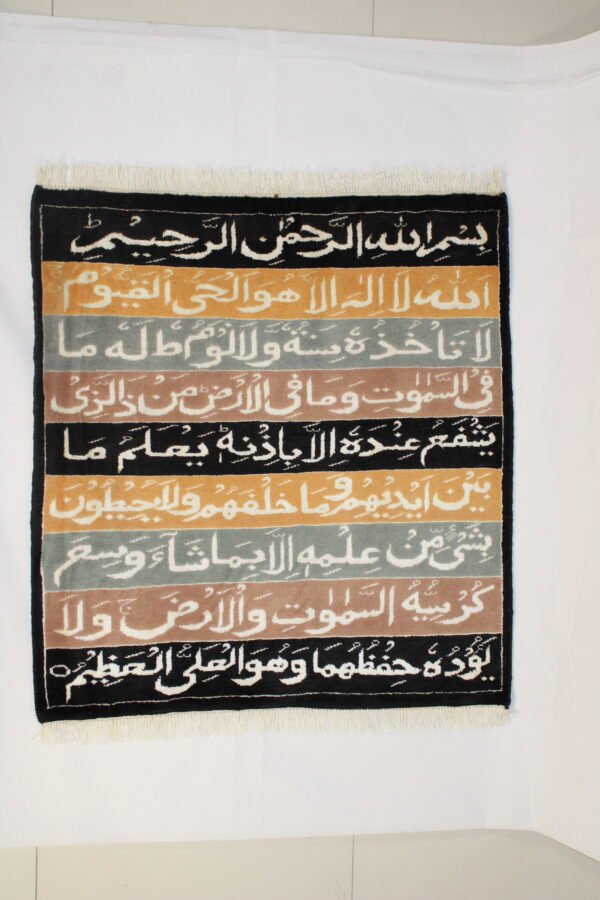 بِسْمِ اللهِ الرَّحْمٰنِ الرَّحِيْمِ ط
اَللهُ لَا اِلٰهَ اِلَّا هُوَ الْحَیُّ الْقَيُّومُ
لَا تَاْخُذُهٗ سِنَةٌ وَّلَا نَوْمٌ ط لَهٗ مَا
فِی السَّمٰوٰتِ وَمَا فِی الْاَرْضِ ط مَنْ ذَالَّذِیْ
يَشْفَعُ عِنْدَهٗ اِلَّا بِاِذْنِهٖ ط يَعْلَمُ مَا
بَيْنَ اَيْدِيْهِمْ وَمَا خَلْفَهُمْ وَلَا يُحِيْطُوْنَ
بِشَیْءٍ مِّنْ عِلْمِهٖ اِلَّا بِمَا شَآءَ وَسِعَ
كُرْسِيُّهُ السَّمٰوٰتِ وَالْاَرْضَ ج وَلَا
يَؤُدُهٗ حِفْظُهُمَا وَهُوَ الْعَلِیُّ الْعَظِيْمُ ○